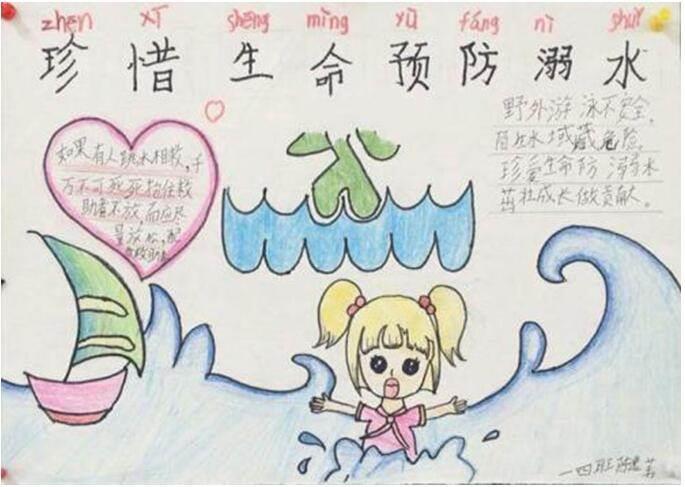 zhēn xī shēng mìng yù fáng nì shuǐ
珍惜生命预防溺水
如果有人跳水相救,千
万不可死死抱住救
助者不放,而应尽
量放松,配
野外游泳不安全,
水域藏危险,
珍爱生命防溺水
茁壮成长做贡献。
一四班